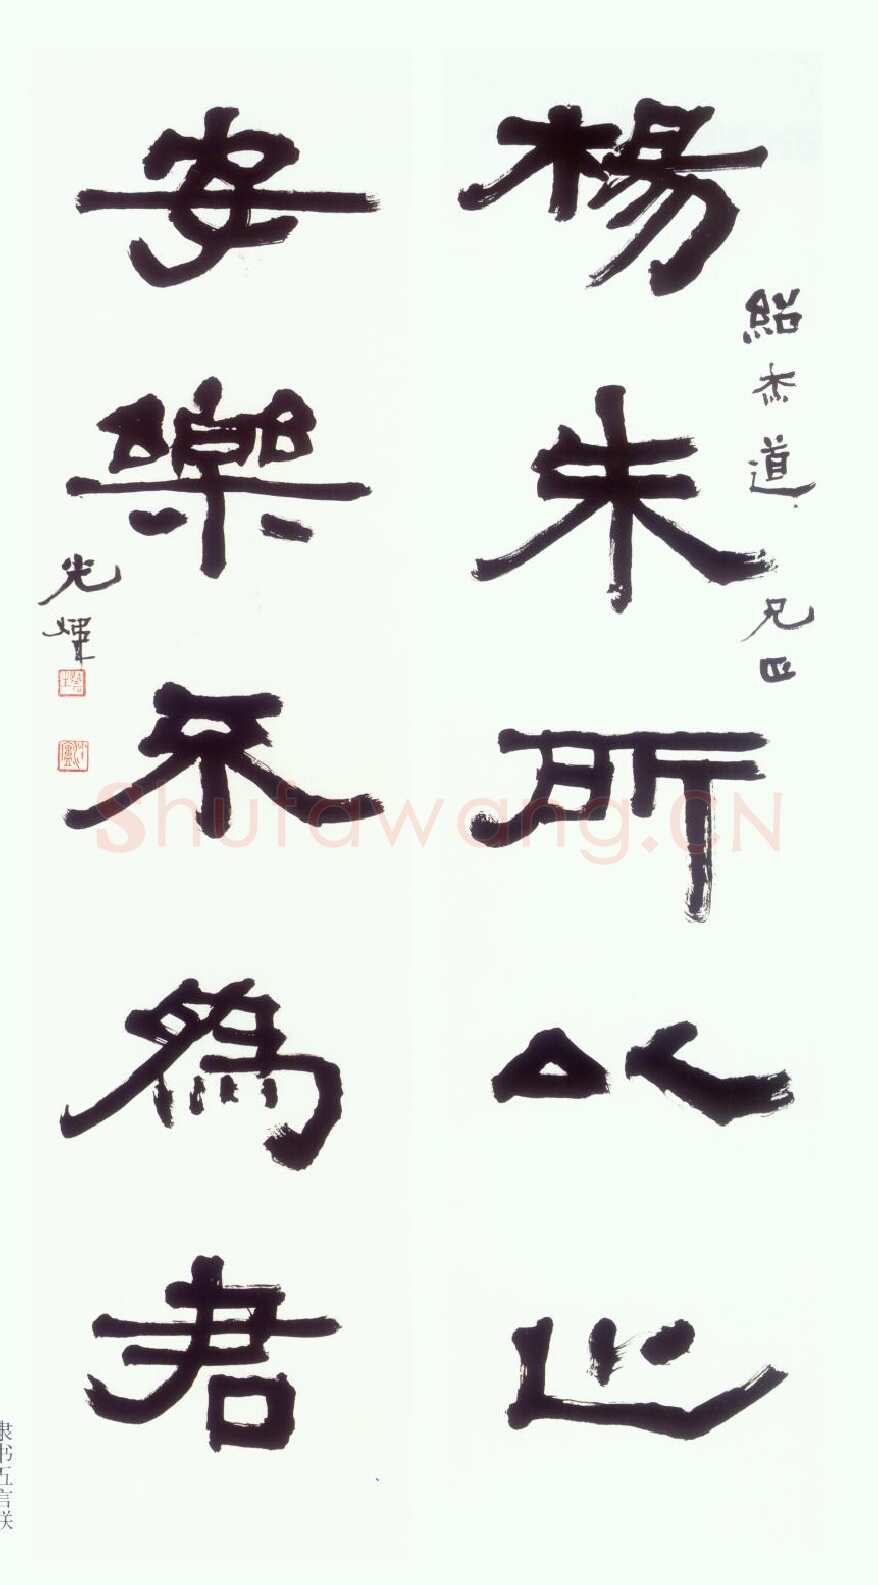 楊朱所以之
紹杰道兄正
安樂不為君
光煇
Shufawang.CN
隶书五言联